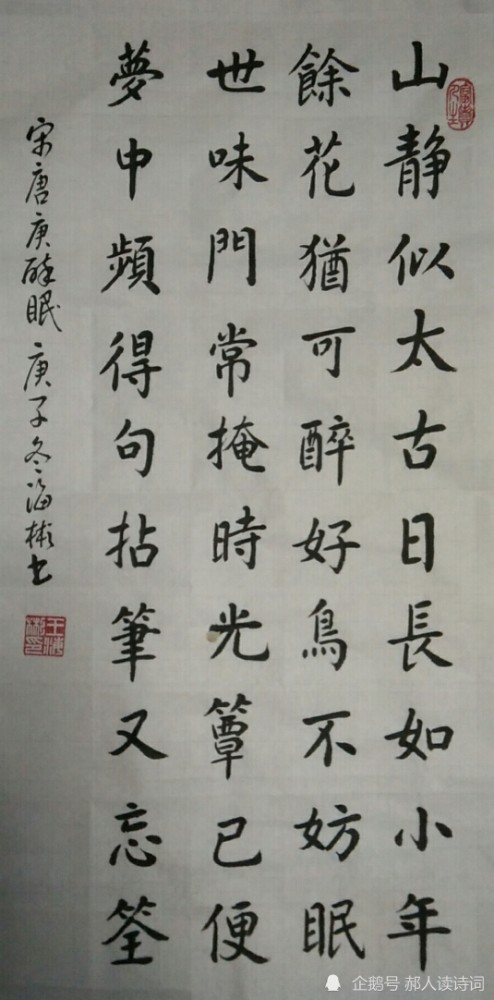 山静似太古日長如小年
餘花猶可醉好鳥不妨眠
世味門常掩時光簟已便
夢中頻得句拈筆又忘筌
宋唐庚醉眠 庚子冬海彬书
王海彬印
企鹅号 郝人读诗词